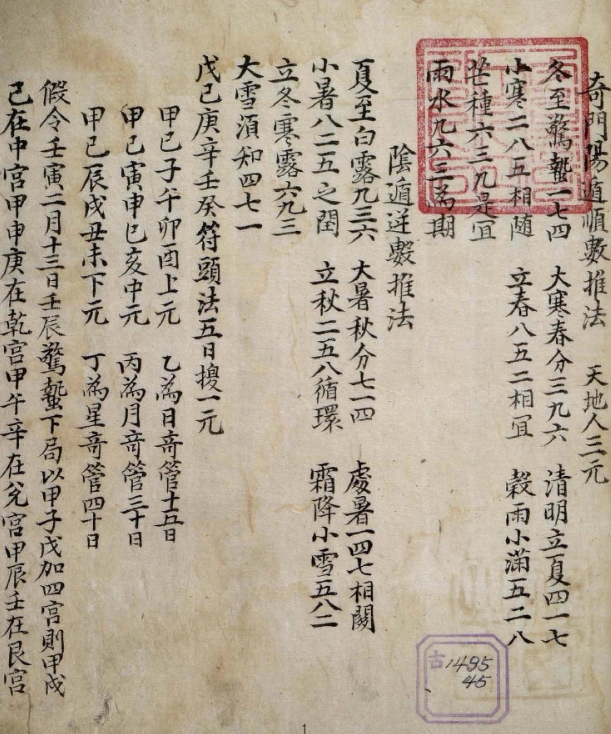 奇門陽遁順數推法 天地人三元
冬至驚蟄一七四 大寒春分三九六 清明立夏四一七
小寒二八五相随 立春八五二相宜 穀雨小滿五二八
芒種六三九是宜
雨水九六三為期
陰遁逆數推法
夏至白露九三六 大暑秋分七一四 處暑一四七相關
小暑八二五之間 立秋二五八循環 霜降小雪五八二
立冬寒露六九三
大雪須知四七一
戊己庚辛壬癸符頭法五日換一元
甲己子午卯酉上元 乙為日竒管十五日
甲己寅申巳亥中元 丙為月竒管三十日
甲己辰戌丑未下元 丁為星竒管四十日
假令壬寅二月十三日壬辰驚蟄下局以甲子戊加四宮則甲戌
己在中宮甲申庚在乾宮甲午辛在兌宮甲辰壬在艮宮
古1495
45
1